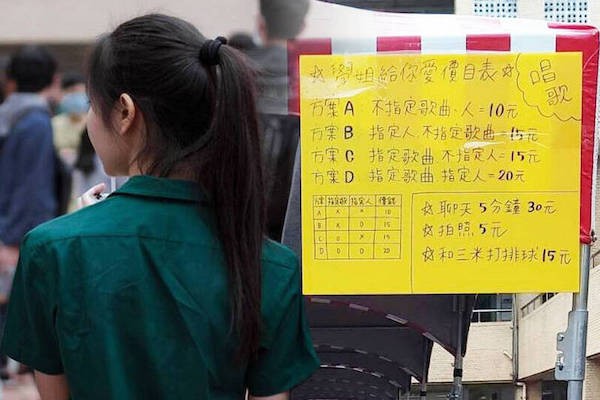 ☆學姐給你愛價目表☆
唱歌
方案A 不指定歌曲、人=10元
方案B 指定人 不指定歌曲=15元
方案C 指定歌曲 不指定人=15元
方案D 指定歌曲 指定人=20元
方案 指定歌 指定人 價錢
A X X 10
B X O 15
C O X 15
D O O 20
☆聊天5分鐘30元
☆拍照5元
☆和三米打排球15元